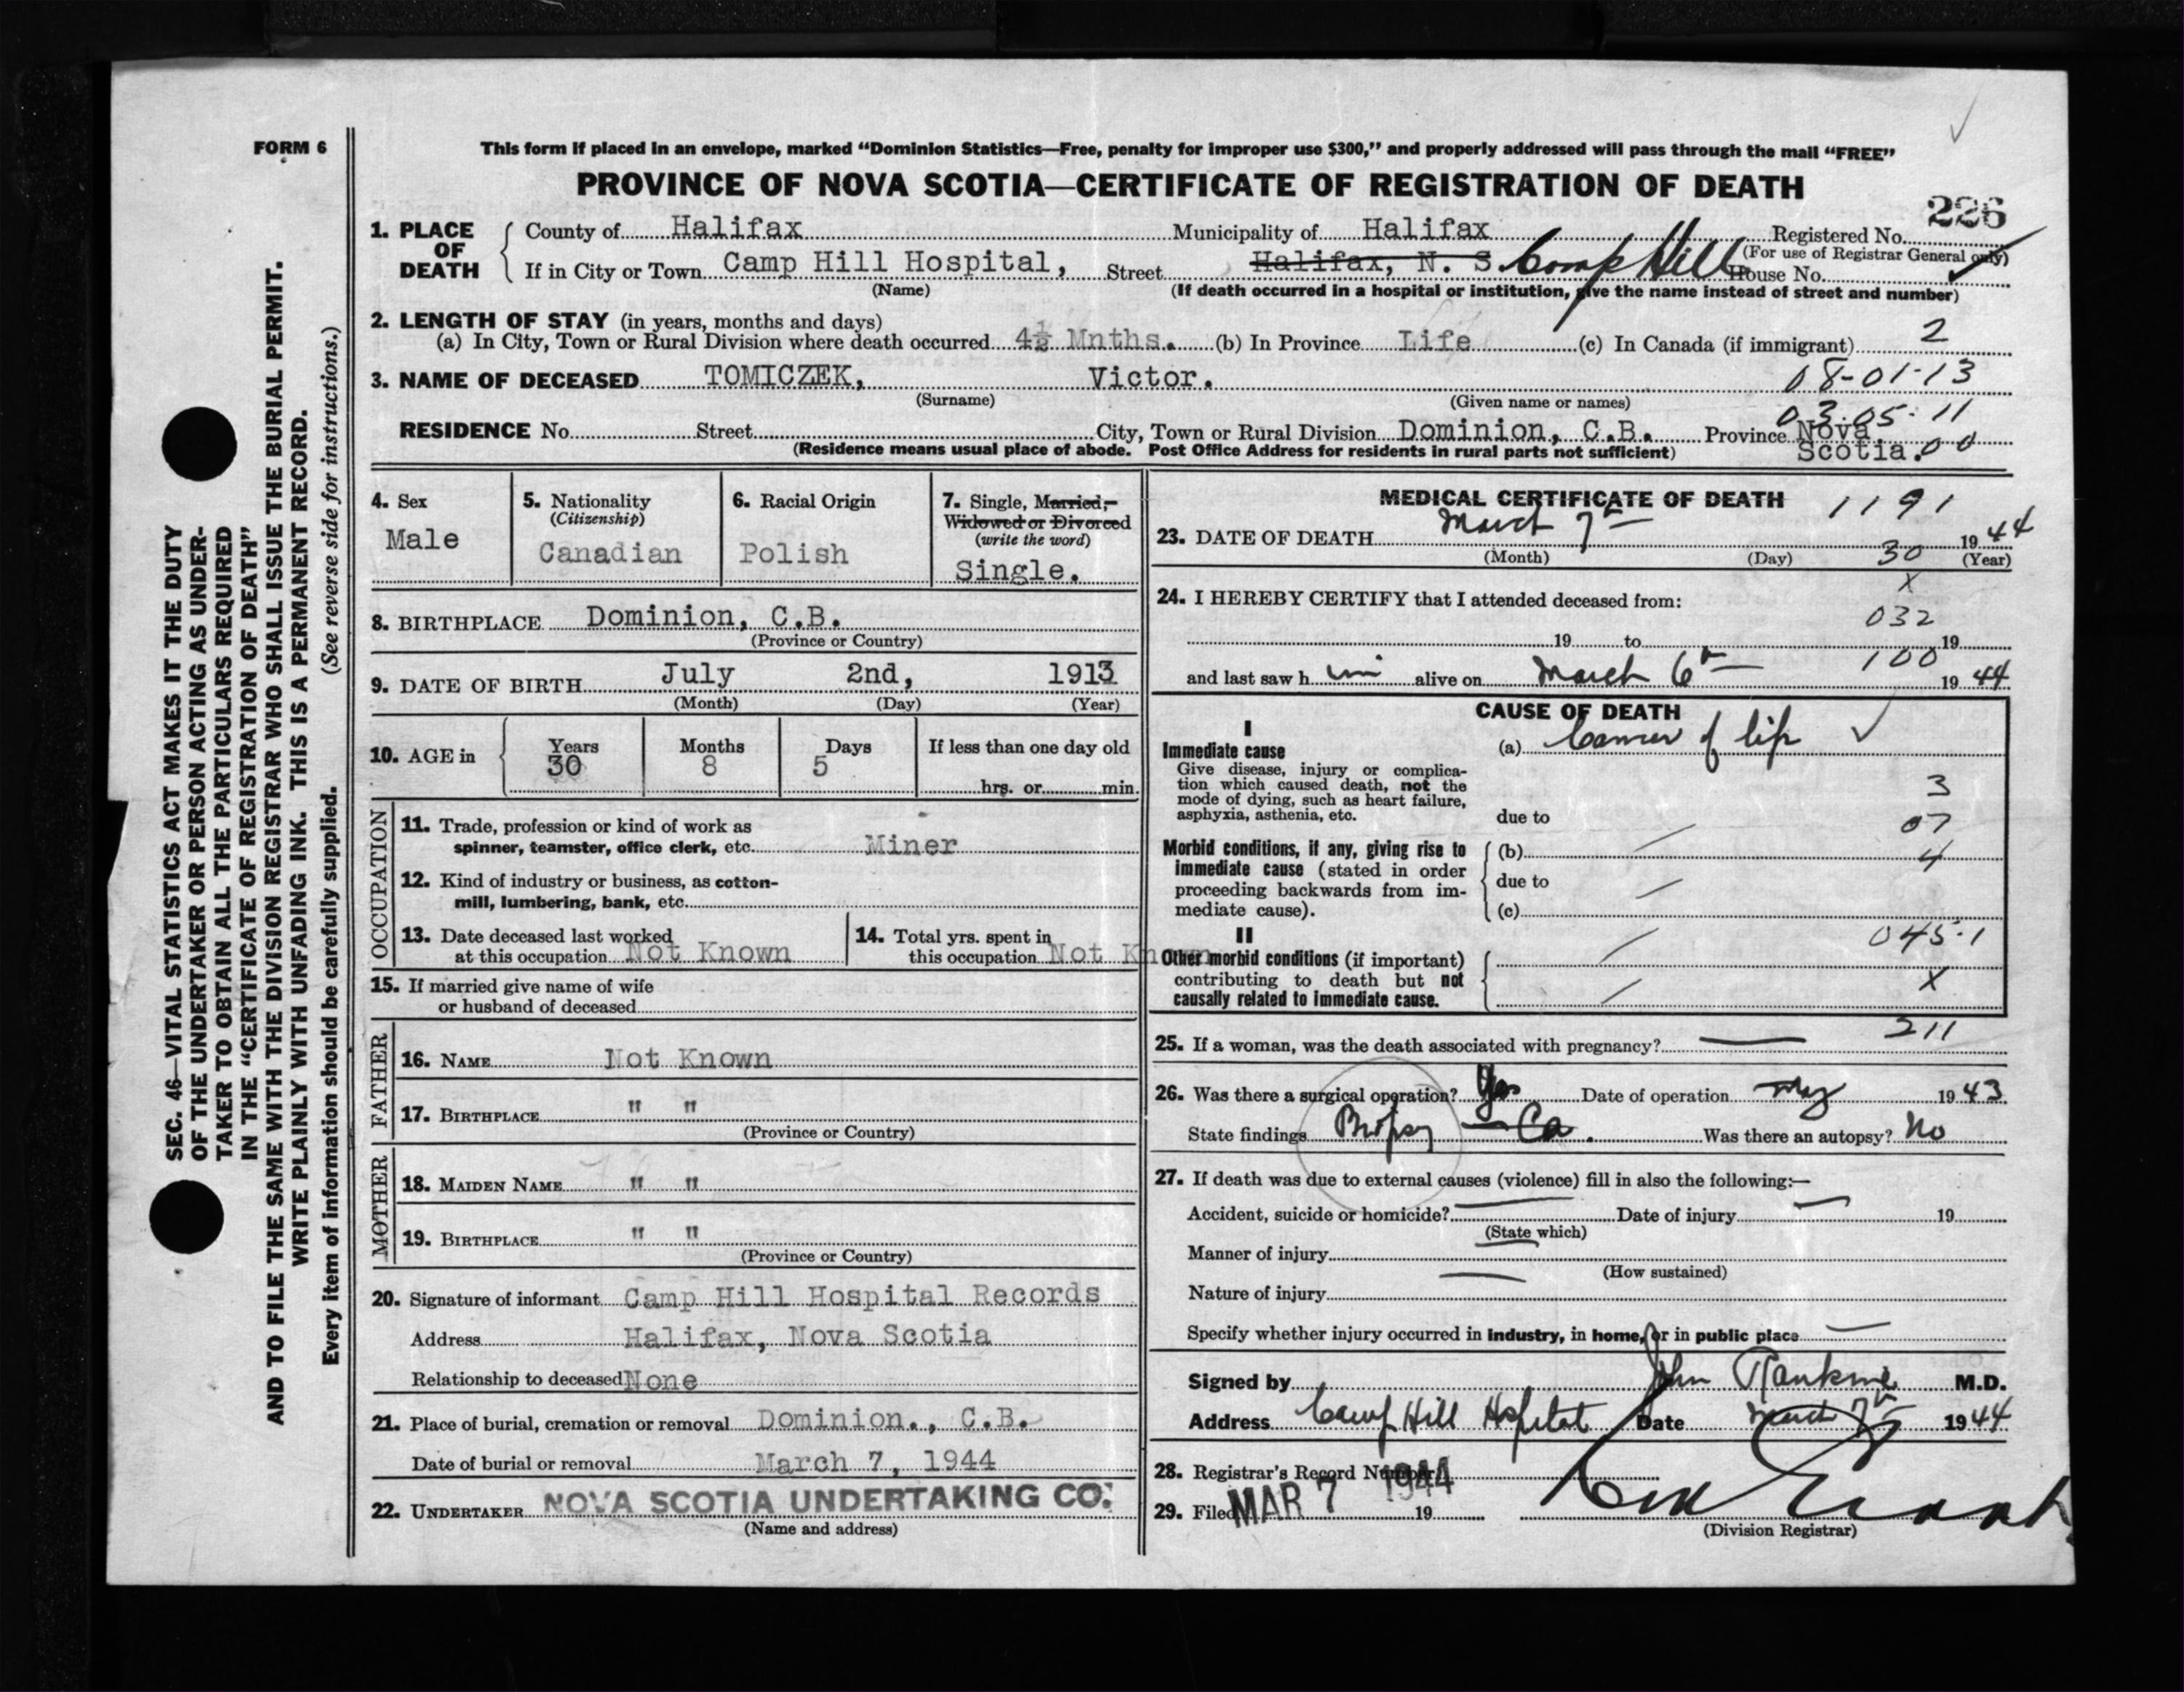 FORM 6
This form if placed in an envelope, marked “Dominion Statistics—Free, penalty for improper use $300,” and properly addressed will pass through the mail “FREE”
PROVINCE OF NOVA SCOTIA—CERTIFICATE OF REGISTRATION OF DEATH
226
1. PLACE OF DEATH
County of Halifax Municipality of Halifax Registered No.
(For use of Registrar General only)
If in City or Town Camp Hill Hospital, Street Halifax, N. S. Camp Hill House No.
(Name) (If death occurred in a hospital or institution, give the name instead of street and number)
2. LENGTH OF STAY (in years, months and days)
(a) In City, Town or Rural Division where death occurred 4½ Mnths. (b) In Province Life (c) In Canada (if immigrant) 2
3. NAME OF DECEASED TOMICZEK, Victor. 08-01-13
(Surname) (Given name or names)
03.05.11
RESIDENCE No. Street City, Town or Rural Division Dominion, C.B. Province Nova Scotia. 00
(Residence means usual place of abode. Post Office Address for residents in rural parts not sufficient)
4. Sex
Male
5. Nationality
(Citizenship)
Canadian
6. Racial Origin
Polish
7. Single, Married, Widowed or Divorced
(write the word)
Single.
8. BIRTHPLACE Dominion, C.B.
(Province or Country)
9. DATE OF BIRTH July 2nd, 1913
(Month) (Day) (Year)
10. AGE in
Years Months Days If less than one day old
30 8 5
hrs. or min.
OCCUPATION
11. Trade, profession or kind of work as
spinner, teamster, office clerk, etc. Miner
12. Kind of industry or business, as cotton-
mill, lumbering, bank, etc.
13. Date deceased last worked
at this occupation Not Known
14. Total yrs. spent in
this occupation Not Known
15. If married give name of wife
or husband of deceased
FATHER
16. NAME Not Known
17. BIRTHPLACE " "
(Province or Country)
MOTHER
18. MAIDEN NAME " "
19. BIRTHPLACE " "
(Province or Country)
20. Signature of informant Camp Hill Hospital Records
Address Halifax, Nova Scotia
Relationship to deceased None
21. Place of burial, cremation or removal Dominion., C.B.
Date of burial or removal March 7, 1944
22. UNDERTAKER NOVA SCOTIA UNDERTAKING CO.
(Name and address)
MEDICAL CERTIFICATE OF DEATH 1191
23. DATE OF DEATH March 7th 1944
(Month) (Day) 30 (Year)
X
24. I HEREBY CERTIFY that I attended deceased from:
032
19 to 19
100
and last saw h im alive on March 6th 1944
CAUSE OF DEATH
I
Immediate cause
Give disease, injury or complica-
tion which caused death, not the
mode of dying, such as heart failure,
asphyxia, asthenia, etc.
(a) Cancer of lip
3
due to
07
Morbid conditions, if any, giving rise to
immediate cause (stated in order
proceeding backwards from im-
mediate cause).
(b) 4
due to
(c)
II
045.1
Other morbid conditions (if important)
contributing to death but not
causally related to immediate cause.
X
211
25. If a woman, was the death associated with pregnancy?
26. Was there a surgical operation? Yes Date of operation May 1943
State findings Biopsy — Ca. Was there an autopsy? No
27. If death was due to external causes (violence) fill in also the following:—
Accident, suicide or homicide? Date of injury 19
(State which)
Manner of injury
(How sustained)
Nature of injury
Specify whether injury occurred in industry, in home, or in public place
Signed by John Rankine M.D.
Address Camp Hill Hospital Date March 7th 1944
28. Registrar's Record Number
29. Filed MAR 7 1944 19
(Division Registrar)
SEC. 46—VITAL STATISTICS ACT MAKES IT THE DUTY
OF THE UNDERTAKER OR PERSON ACTING AS UNDER-
TAKER TO OBTAIN ALL THE PARTICULARS REQUIRED
IN THE “CERTIFICATE OF REGISTRATION OF DEATH”
AND TO FILE THE SAME WITH THE DIVISION REGISTRAR WHO SHALL ISSUE THE BURIAL PERMIT.
WRITE PLAINLY WITH UNFADING INK. THIS IS A PERMANENT RECORD.
Every item of information should be carefully supplied. (See reverse side for instructions.)